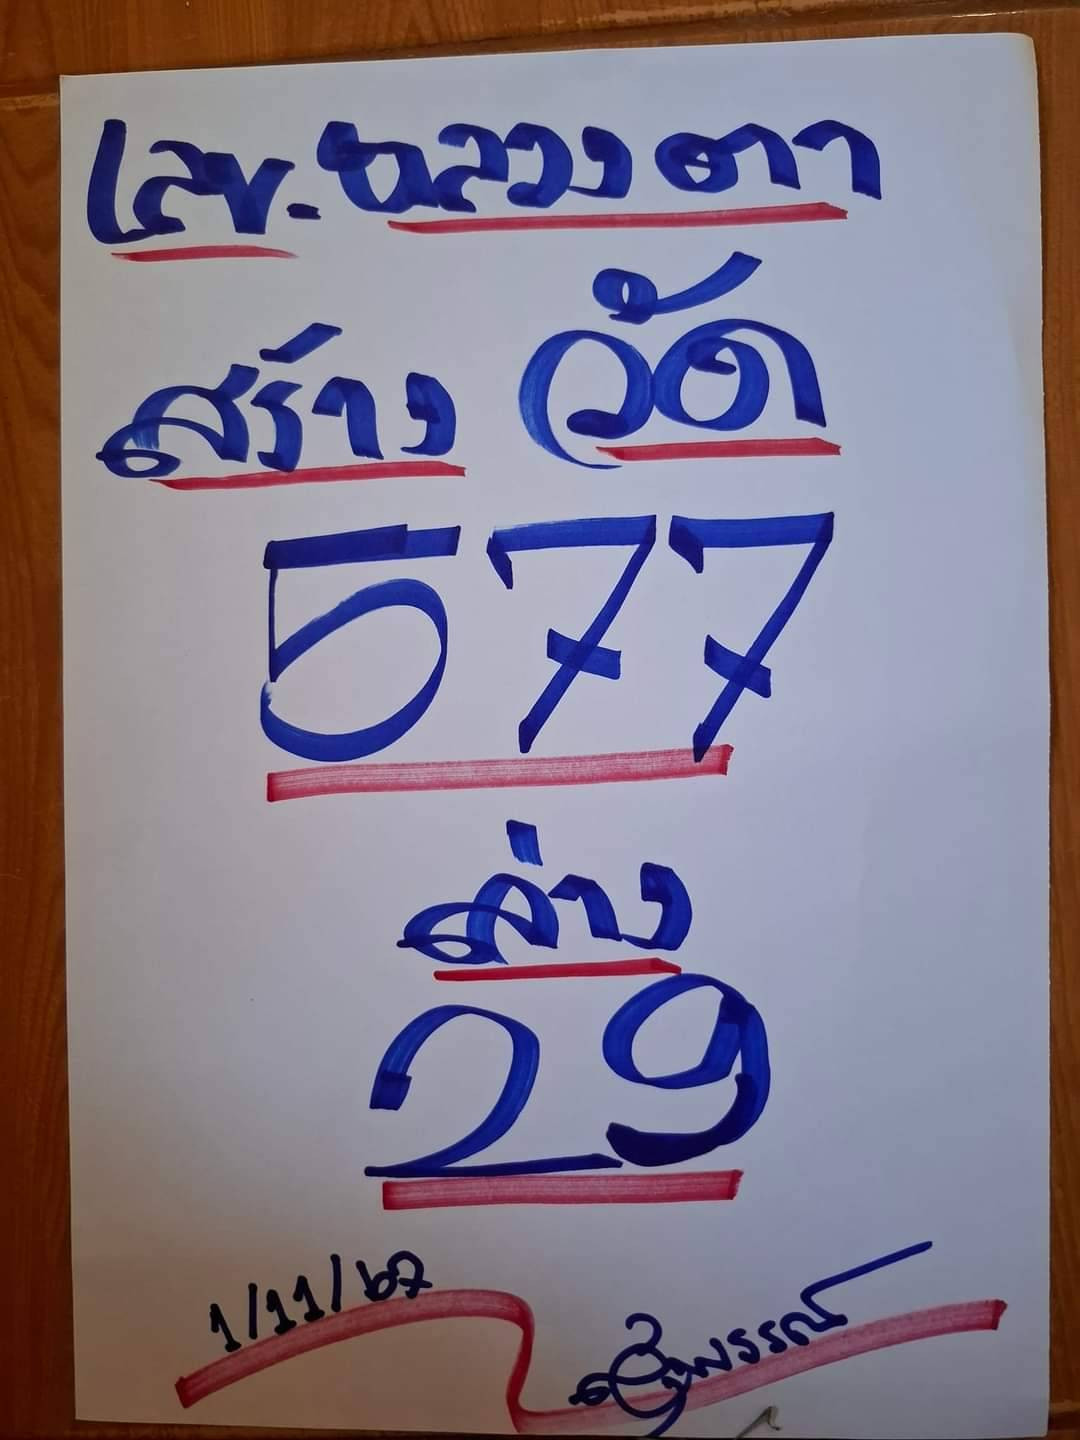 เลข. หลวงตา
สร้าง วัด
577
ล่าง
29
1/11/67